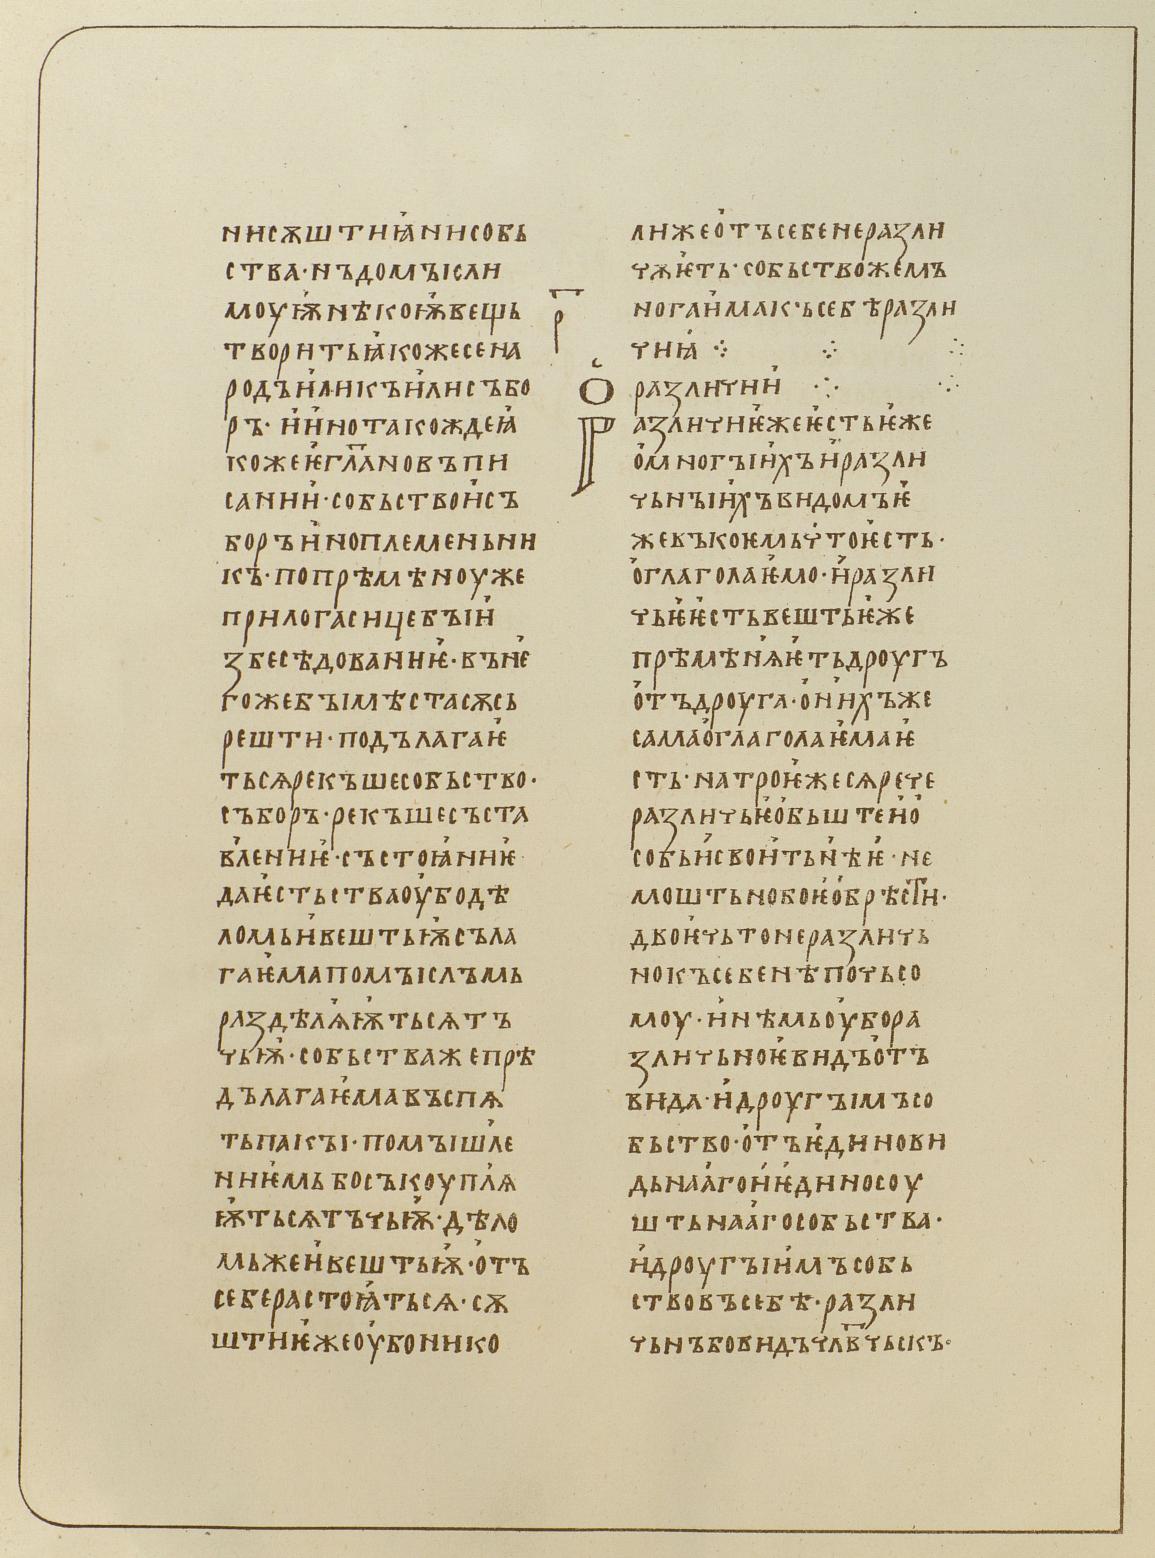 нисѫштиꙗ нисобь
ства·нъдомъісли
моуѭнѣкоѭвещь
творитьꙗкожесена
родъилкикъилисъбо
ръ·ииинотакождеꙗ
кожеѥгл҃ановъпи
сании·собьствоисъ
боръиноплеменьни
къ·попрѣмѣноуже
прилогасицебъіи
збесѣдованиѥ·въне
гожебъімѣстасѫсь
решти·подълагаѥ
тьсѧрекъшесобьство·
съборъ·рекъшесъста
влениѥ·състоꙗниѥ
даѥстьстваоубодѣ
ломьивештьѭсъла
гаѥмапомъісльмь
раздѣлѧѭтьсѧтъ
чьѭ·собьстважепрѣ
дълагаѥмавъспѧ
тьпакъі·помъішле
ниѥмьбосъкоуплѧ
ѭтьсѧтъчьѭ·дѣло
мьжеивештьѭ·отъ
себерастоꙗтьсѧ·сѫ
штиѥжеоубонико
лижеотъсебенеразли
чѫѥть·собьствожемъ
ноглимакъсебѣразли
чиꙗ
г҃
о разлічии
Разлічиѥжеѥстьѥже
омногъіихъиразли
чьнъіихъвидомъѥ
жевъкоѥмьчтоѥсть·
оглаголаѥмо·иразли
чьѥѥстьвештьѥже
прѣмѣнѧѥтьдроугъ
отъдроуга·онихъже
самаоглаголаѥмаѥ
сть·натроѥжесѧрече
разлічьѥобьштеио
собьисвоитьнѣѥ·не
моштьнобоѥобрѣсти·
двоичьтонеразличь
нокъсебенѣпочьсо
моу·инѣмьоубора
зличьноѥвидъотъ
вида·идроугъімъсо
бьство·отъѥдинови
дьнаагоиѥдиносоу
штьнаагособьства·
идроугъіимъсобь
ствовъсебѣ·разли
чьнъбовидъчл҃вчьскъ·